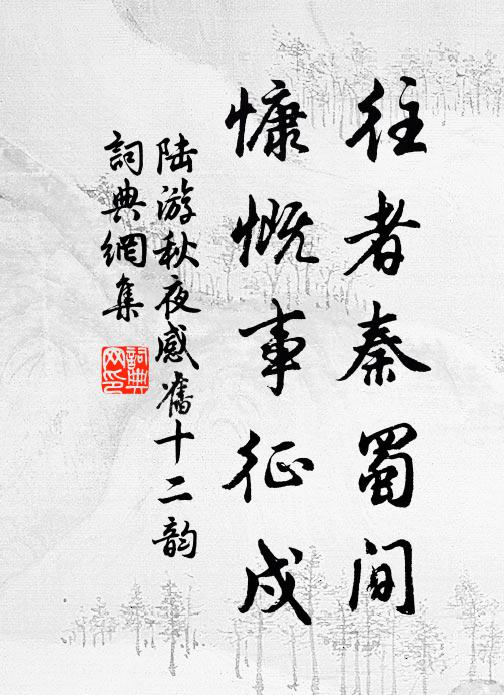 往者秦蜀间
慷慨事征戍
陆游秋夜感旧十二韵
詞典網集
詞典网印